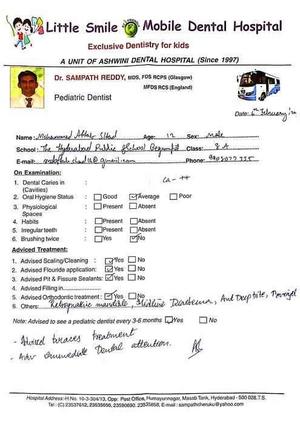 Little Smile Mobile Dental Hospital
Exclusive Dentistry for kids
A UNIT OF ASHWINI DENTAL HOSPITAL (Since 1997)
Dr. SAMPATH REDDY, MDS, FDS RCPS (Glasgow)
MFDS RCS (England)
Pediatric Dentist
Date: 6th February
Name: Mohammed Age: 12 Sex: Male
School: The Hyderabad Public School Begumpet Class: 8 A
E-mail: Phone:
On Examination:
1. Dental Caries in (Cavities)
2. Oral Hygiene Status : Good Average Poor
3. Physiological Spaces : Present Absent
4. Habits : Present Absent
5. Irregular teeth : Present Absent
6. Brushing twice : Yes No
Adviced Treatment:
1. Advised Scaling/Cleaning : Yes No
2. Advised Flouride application: Yes No
3. Advised Pit & Fissure Sealants: Yes No
4. Advised Filling in
5. Advised Orthodontic treatment : Yes No
6. Others: Retrognathic mandible, Midline Diastema, And Deep bite,
Note: Advised to see a pediatric dentist every 3-6 months Yes No
- Advised braces treatment
- Adv immediate Dental attention.
Hospital Address: H.No. 10-3-304/13, Opp: Post Office, Humayunnagar, Masab Tank, Hyderabad - 500 028.T.S.
E-mail: sampathcheruku@yahoo.com